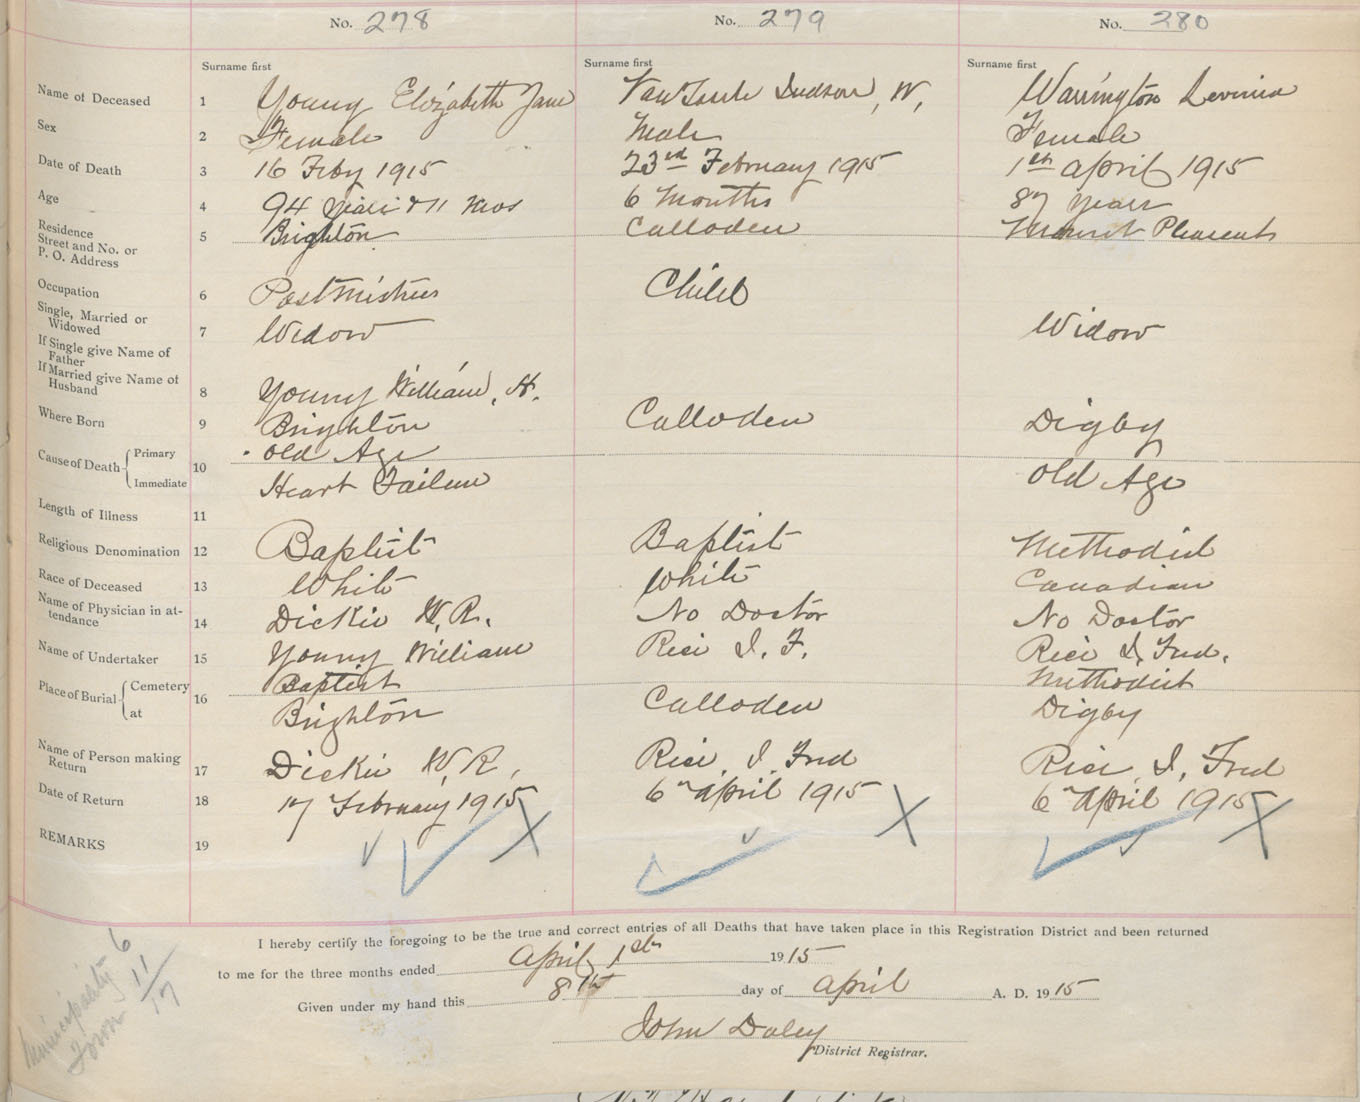 No. 278
No. 279
No. 280
Surname first
Surname first
Surname first
Name of Deceased 1 Young Elizabeth Jane Judson, W. Warrington Levinia
Sex 2 Female Male Female
Date of Death 3 16 Feby 1915 23rd February 1915 1st april 1915
Age 4 94 years & 11 mos 6 Months 87 years
Residence
Street and No. or
P. O. Address
5 Brighton Culloden Mount Pleasent
Occupation 6 Postmistress Child
Single, Married or
Widowed
7 Widow Widow
If Single give Name of
Father
If Married give Name of
Husband
8 Young William, H.
Where Born 9 Brighton Culloden Digby
Cause of Death Primary Old Age
10
Immediate Heart Failure Old Age
Length of Illness 11
Religious Denomination 12 Baptist Baptist Methodist
Race of Deceased 13 White White Canadian
Name of Physician in at-
tendance
14 Dickie W. R. No Doctor No Doctor
Name of Undertaker 15 Young William Rice I. F. Rice I, Fred.
Place of Burial Cemetery Baptist Methodist
16
at Brighton Culloden Digby
Name of Person making
Return
17 Dickie W, R, Rice, I, Fred Rice, I, Fred
Date of Return 18 17 February 1915 6th april 1915 6th april 1915
REMARKS 19
I hereby certify the foregoing to be the true and correct entries of all Deaths that have taken place in this Registration District and been returned
to me for the three months ended April 1st 1915
Given under my hand this 8th day of April A. D. 1915
John Daley
District Registrar.
Municipality 6
Town 11/17